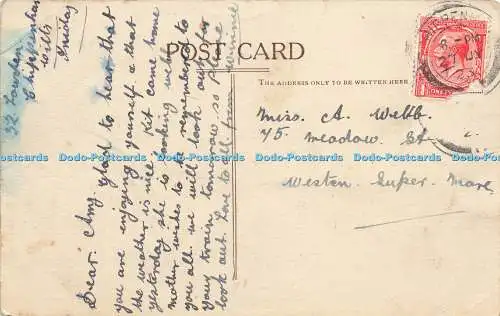 32 Lowden
Chippenham
Wilts
Tuesday
Dear Amy Glad to hear that
you are enjoying yourself & that
the weather is nice. Kit came home
yesterday she is looking well
mother wishes to be remembered to
you all. we will look out for
your train tomorrow, so please
look out. Love to all from Winnie
POST CARD
THE ADDRESS ONLY TO BE WRITTEN HERE
CHIPPENHAM
8 - PM
27 JU
Miss. A Webb.
75. meadow St.
Westen. Super. Mare
Dodo-Postcards Dodo-Postcards Dodo-Postcards Dodo-Postcards Dodo-Postcards